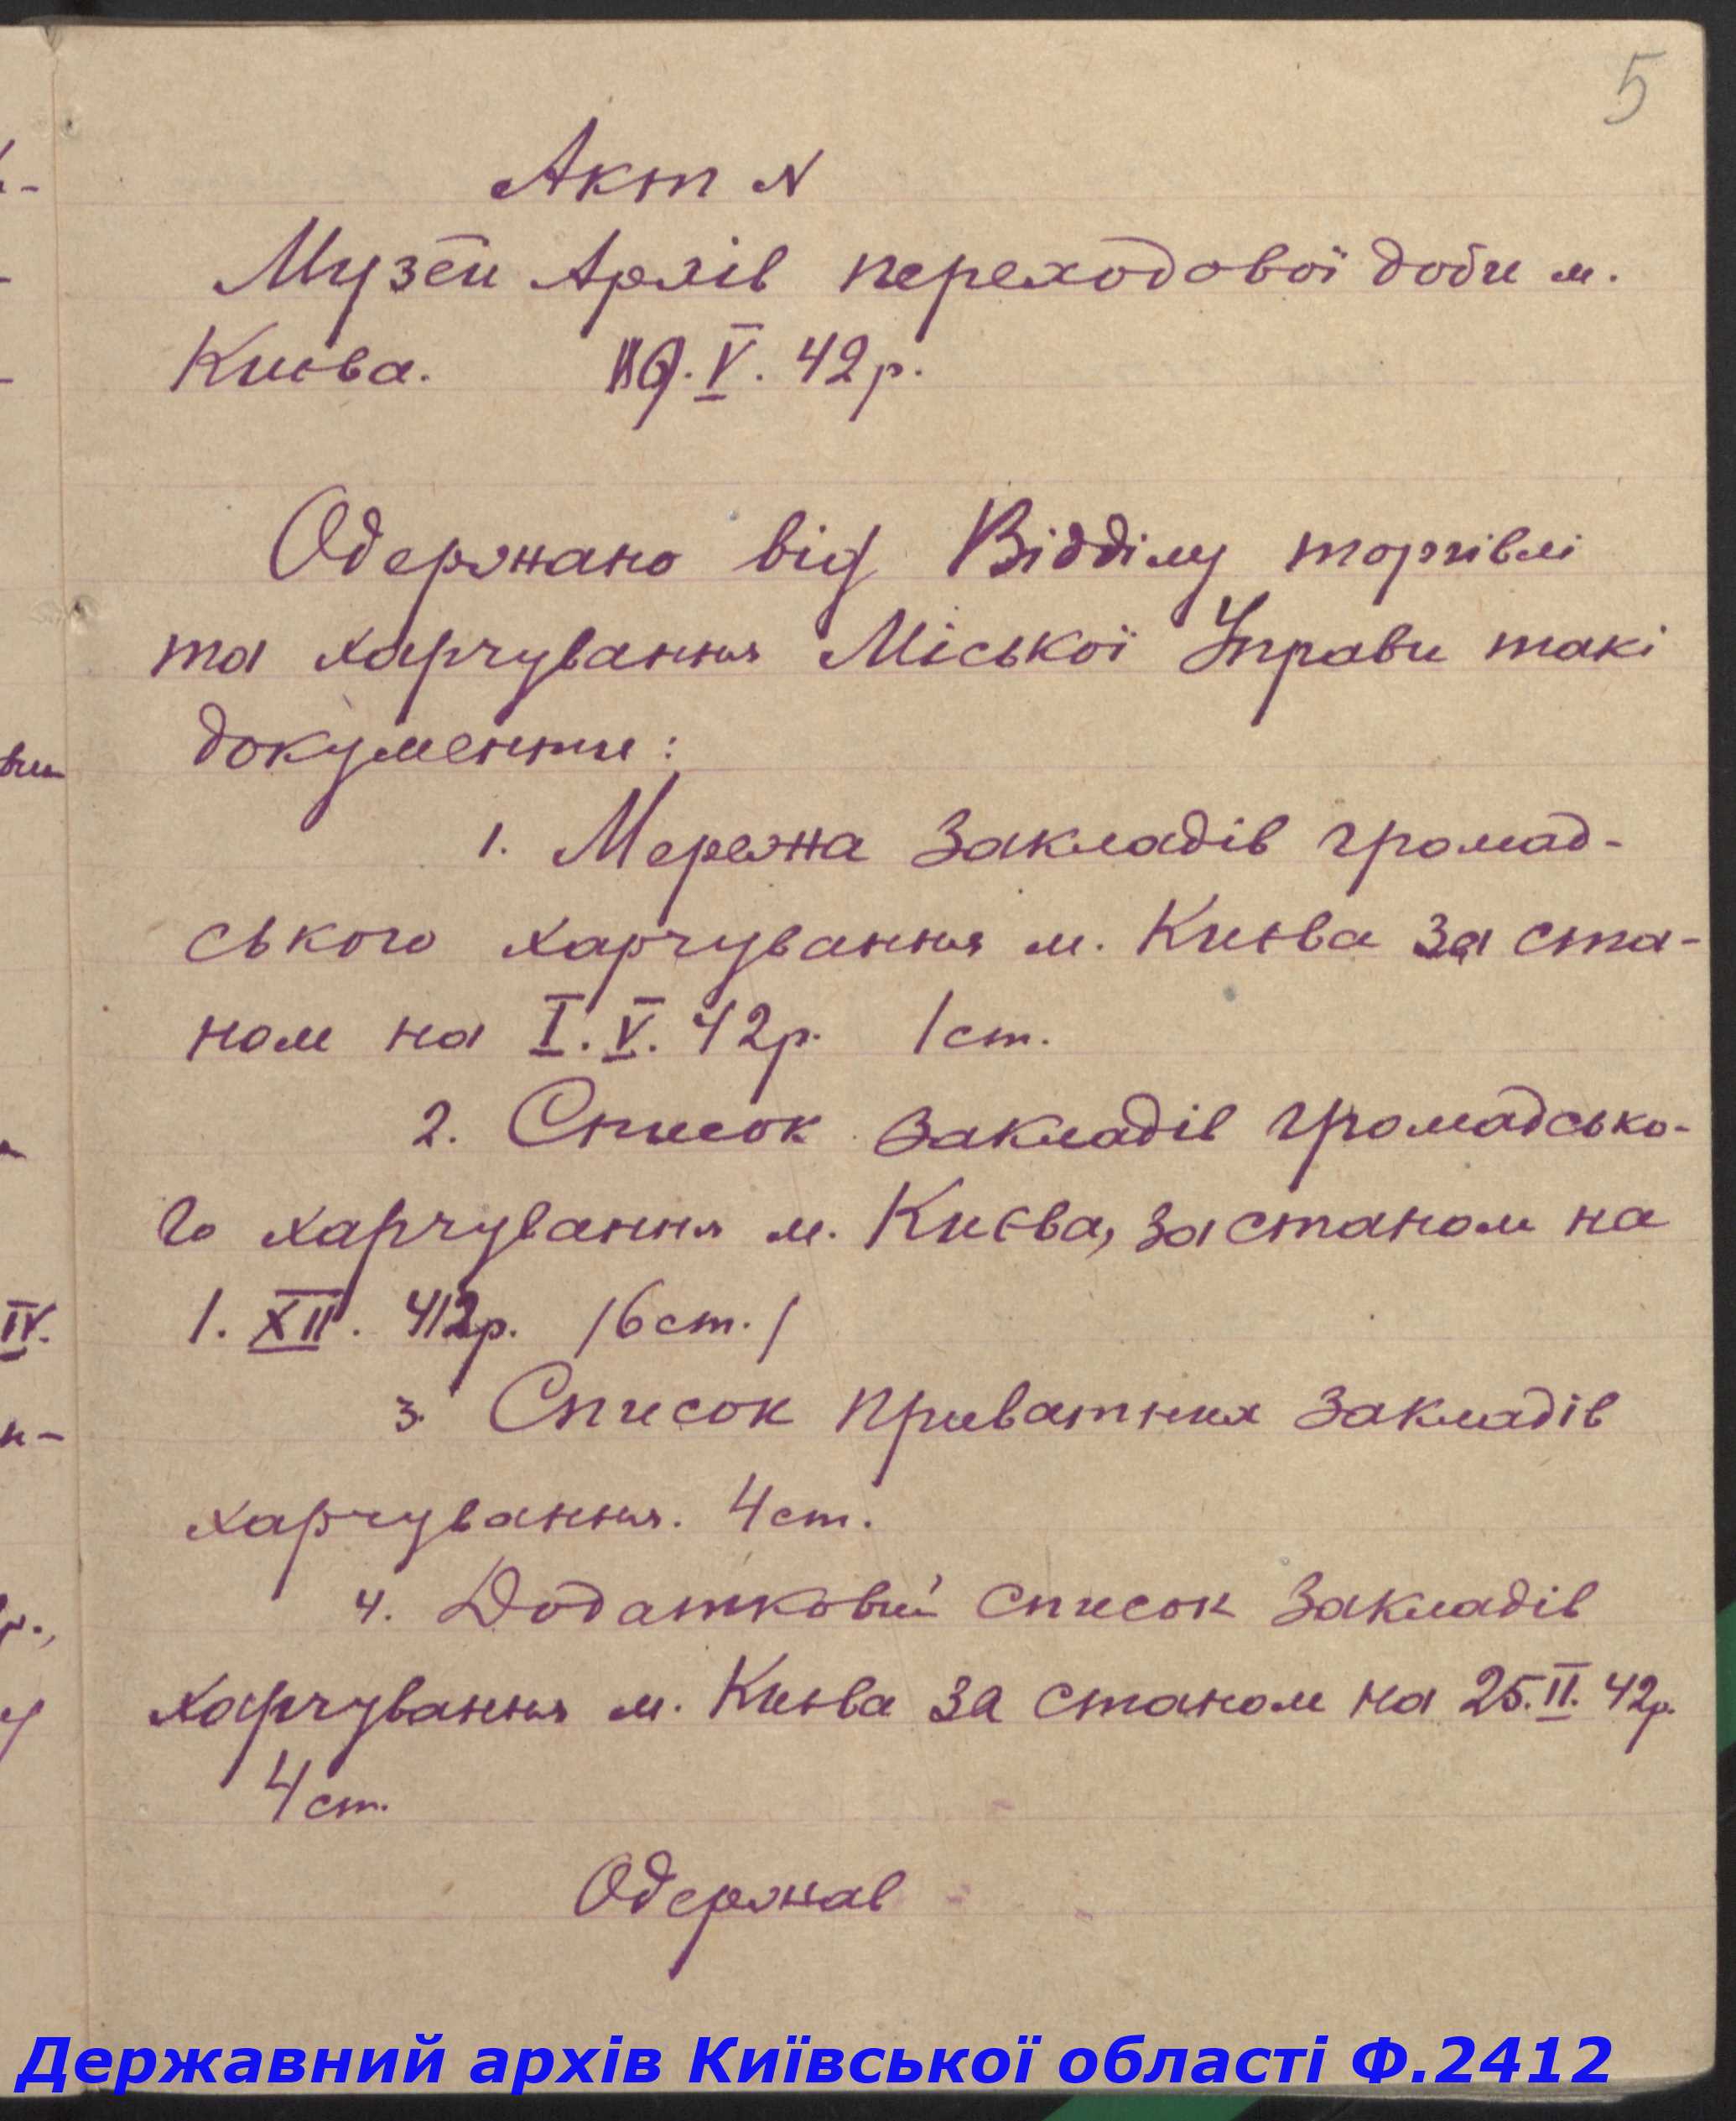 5
Акт N
Музей Архів переходової доби м.
Києва. .V. 42р.
Одержано від Відділу торгівлі
та харчування Міської Управи такі
документи:
1. Мережа закладів громад-
ського харчування м. Києва за ста-
ном на I.V. 42р. 1ст.
2. Список закладів громадсько-
го харчування м. Києва, за станом на
1. XII. /6ст./
3. Список приватних закладів
харчування. 4ст.
4. Додатковий список закладів
харчування м. Києва за станом на 25.II. 42р.
4ст.
Одержав
Державний архів Київської області Ф.2412